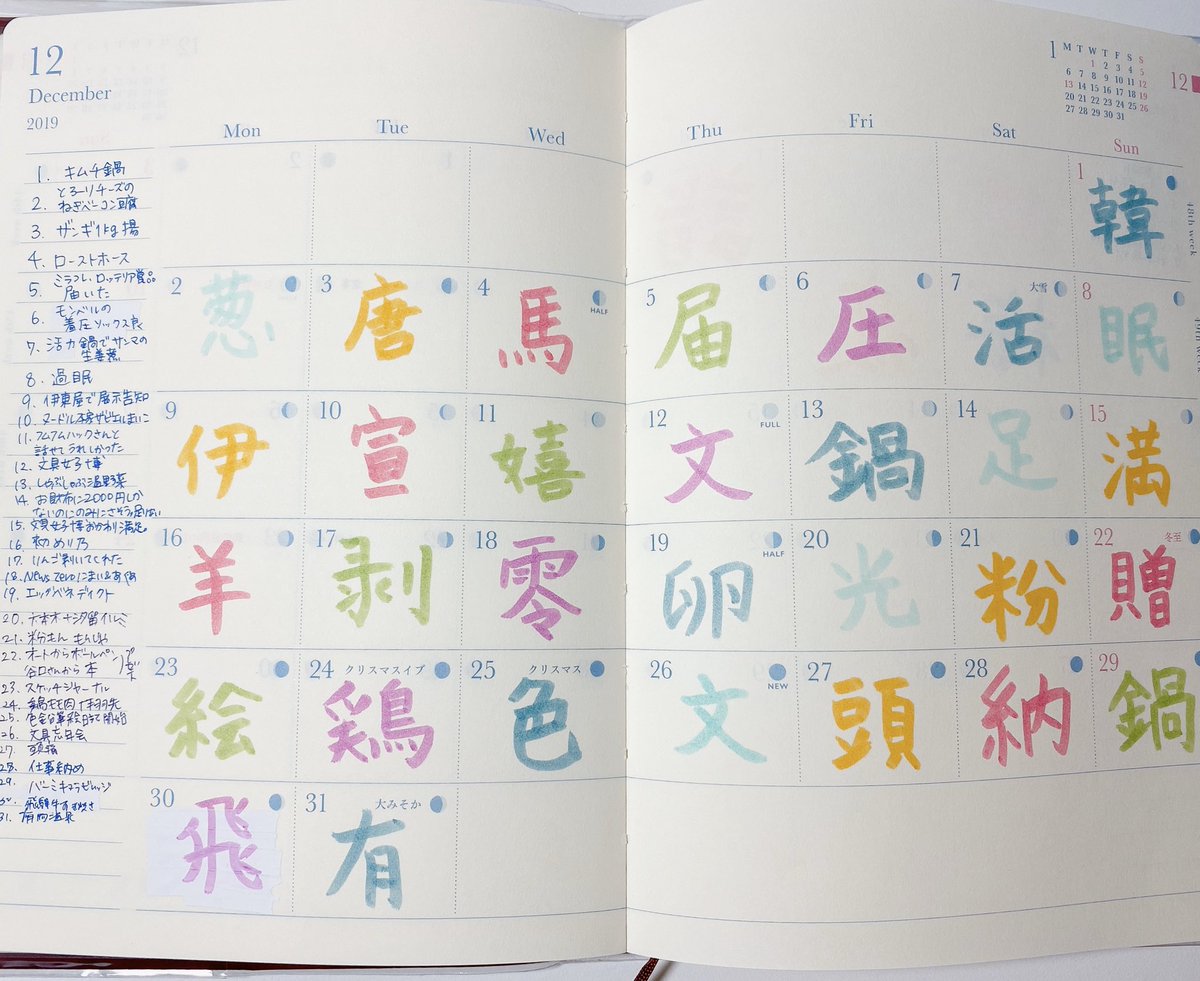 12
December
2019
1. キムチ鍋
とろーりチーズの
2. ねぎベーコン豆腐
3. ザンギ 揚
4. ローストホース
ミラコレ・ロッテリア賞品
5. 届いた
6. モンベルの
着圧ソックス良
7. 活力鍋でサンマの
生姜煮
8. 過眠
9. 伊東屋で展示告知
10. ヌードル
11. フムフムハックさんと
話せてうれしかった
12. 文具女子博
13. しゃぶしゃぶ温野菜
14. お財布に2000円しか
ないのにのみにさそう足りない
15. 文具女子博おかわり満足
16. 初めり乃
17. りんご剥いてくれた
18. News zero
19. エッグベネディクト
20. 六本木 汐留イルミ
21. 粉もん もんじゃ
22. オートからボールペン
谷口さんから本
23. スケッチジャーナル
24. 鍋
25. 色
26. 文具忘年会
27. 頭痛
28. 仕事納め
29. バーミキュラビレッジ
30. 飛騨牛すき焼き
31. 有
Mon Tue Wed Thu Fri Sat Sun
1
M T W T F S S
1 2 3 4 5
6 7 8 9 10 11 12
13 14 15 16 17 18 19
20 21 22 23 24 25 26
27 28 29 30 31
12
1 韓
48th week
2 葱
3 唐
4 馬 HALF
5 届
6 圧
7 大雪 活
8 眠
9 伊
10 宣
11 嬉
12 文 FULL
13 鍋
14 足
15 満
16 羊
17 剥
18 零
19 卵 HALF
20 光
21 粉
22 冬至 贈
23 絵
24 クリスマスイブ 鶏
25 クリスマス 色
26 文 NEW
27 頭
28 納
29 鍋
30 飛
31 大みそか 有